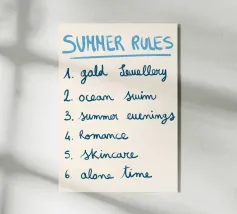 SUMMER RULES
1. gold Jewellery
2. ocean swim
3. summer evenings
4. Romance
5. skincare
6. alone time